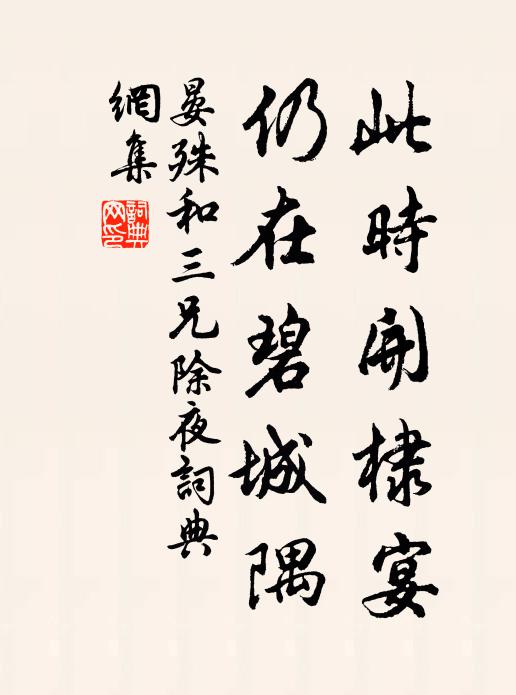 此時開棣宴
仍在碧城隅
晏殊和三兄除夜詞典
網集
詞典
網印